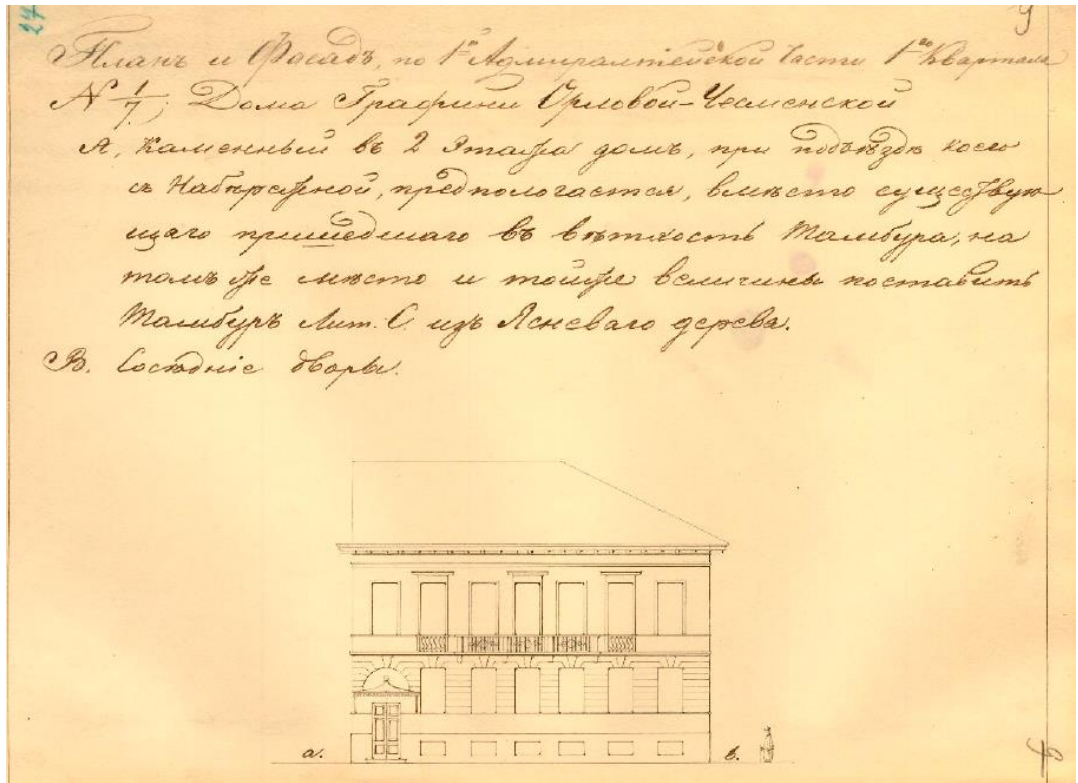 27
Планъ и Фасадъ, по 1й Адмиралтейской Части 1го Квартала
N 1/7, Дома Графини Орловой-Чесменской
А, Каменный въ 2 Этажа домъ, при подъѣздѣ коего
съ Набѣрежной, предпологается, вмѣсто существую-
щаго пришедшаго въ вѣтхость Тамбура, на
томъ же мѣсто и тойже величины поставить
Тамбуръ Лит. С. изъ Ясневаго дерева.
В. Сосѣдніе дворы.
а. в.